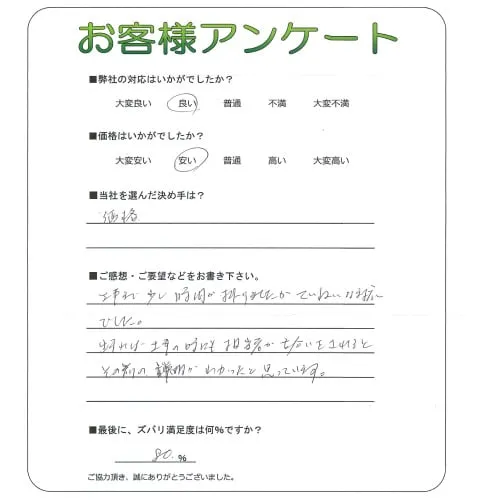 お客様アンケート
■弊社の対応はいかがでしたか?
大変良い 良い 普通 不満 大変不満
■価格はいかがでしたか?
大変安い 安い 普通 高い 大変高い
■当社を選んだ決め手は?
価格
■ご感想・ご要望などをお書き下さい。
工事で少し時間が掛りましたが ていねいな対応
でした。
出来れば 工事の時にも 担当者が 立合いをされると
その前の 説明が わかったと思っています。
■最後に、ズバリ満足度は何%ですか?
80. %
ご協力頂き、誠にありがとうございました。